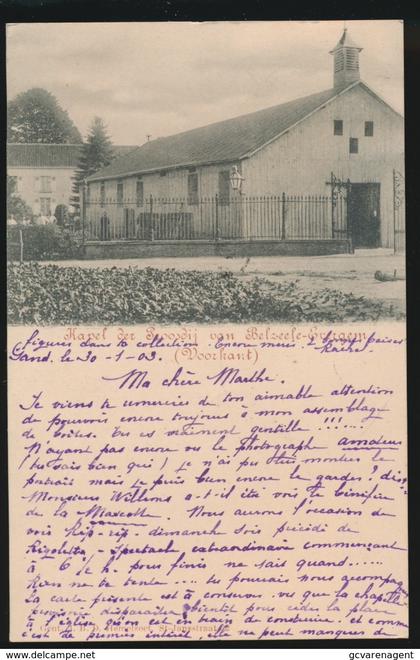 Kapel der Proosdij van Belzeele-Evergem
(Voorkant)
figurer dans ta collection. Encore merci. bons baisers
Gand. le 30-1-03. Rachel
Ma chère Marthe.
Je viens te remercier de ton aimable attention
de pouvoir encore toujours à mon assemblage
de boîtes. Tu es vraiment gentille !!!....
N'ayant pas encore vu le photograph amateur
(tu sais bien qui) je n'ai pu lui montrer le
portrait mais je puis bien encore le garder? dis..
Monsieur Willems a-t-il été voir le bénéfice
de la Mascotte. Nous aurons l'occasion de
voir Rip-rip. dimanche soir précédé de
Rigoletto, Spectacle extraordinaire commençant
à 6 h. pour finir ne sait quand.....
tu pourrais nous accomp
la carte présente est à conserver. vu que la chapelle
disparaître bientôt pour céder la place
à l'église qu'on est en train de construire. et comme
c'est de premier intérêt, elle ne peut manquer de
St-Jansstraat
www.gevaninagent.com